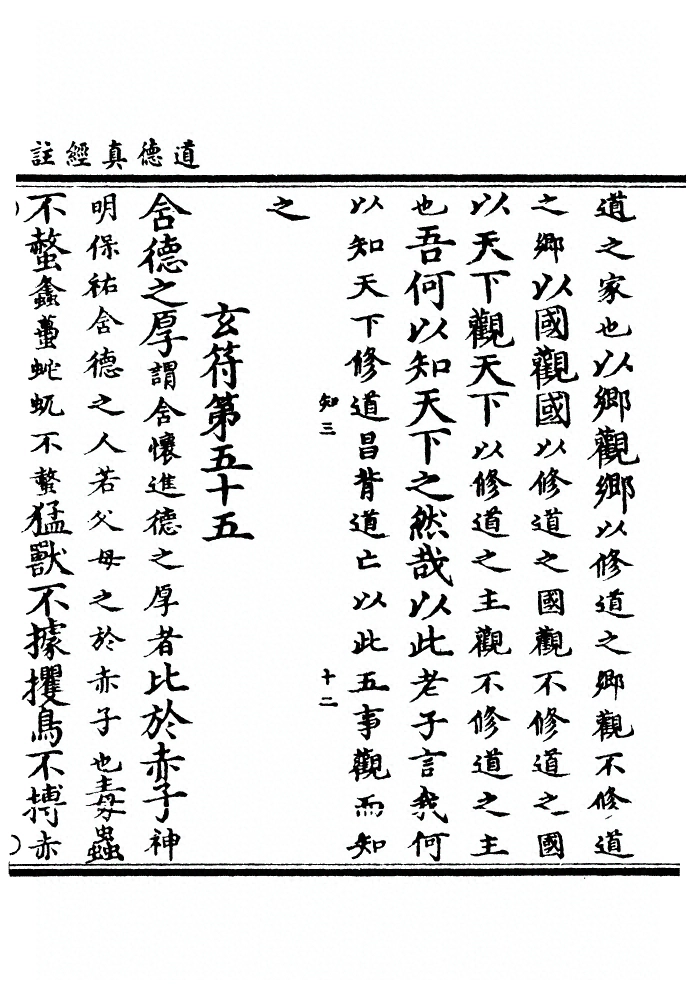 道德真經註
道之家也以鄉觀鄉以修道之鄉觀不修道
之鄉以國觀國以修道之國觀不修道之國
以天下觀天下以修道之主觀不修道之主
也吾何以知天下之然哉以此老子言我何
以知天下修道昌背道亡以此五事觀而知
知三
十二
之
玄符第五十五
含德之厚謂含懷進德之厚者比於赤子神
明保祐含德之人若父母之於赤子也毒蟲
不螫蠭蠆蛇虺不螫猛獸不據攫鳥不搏赤